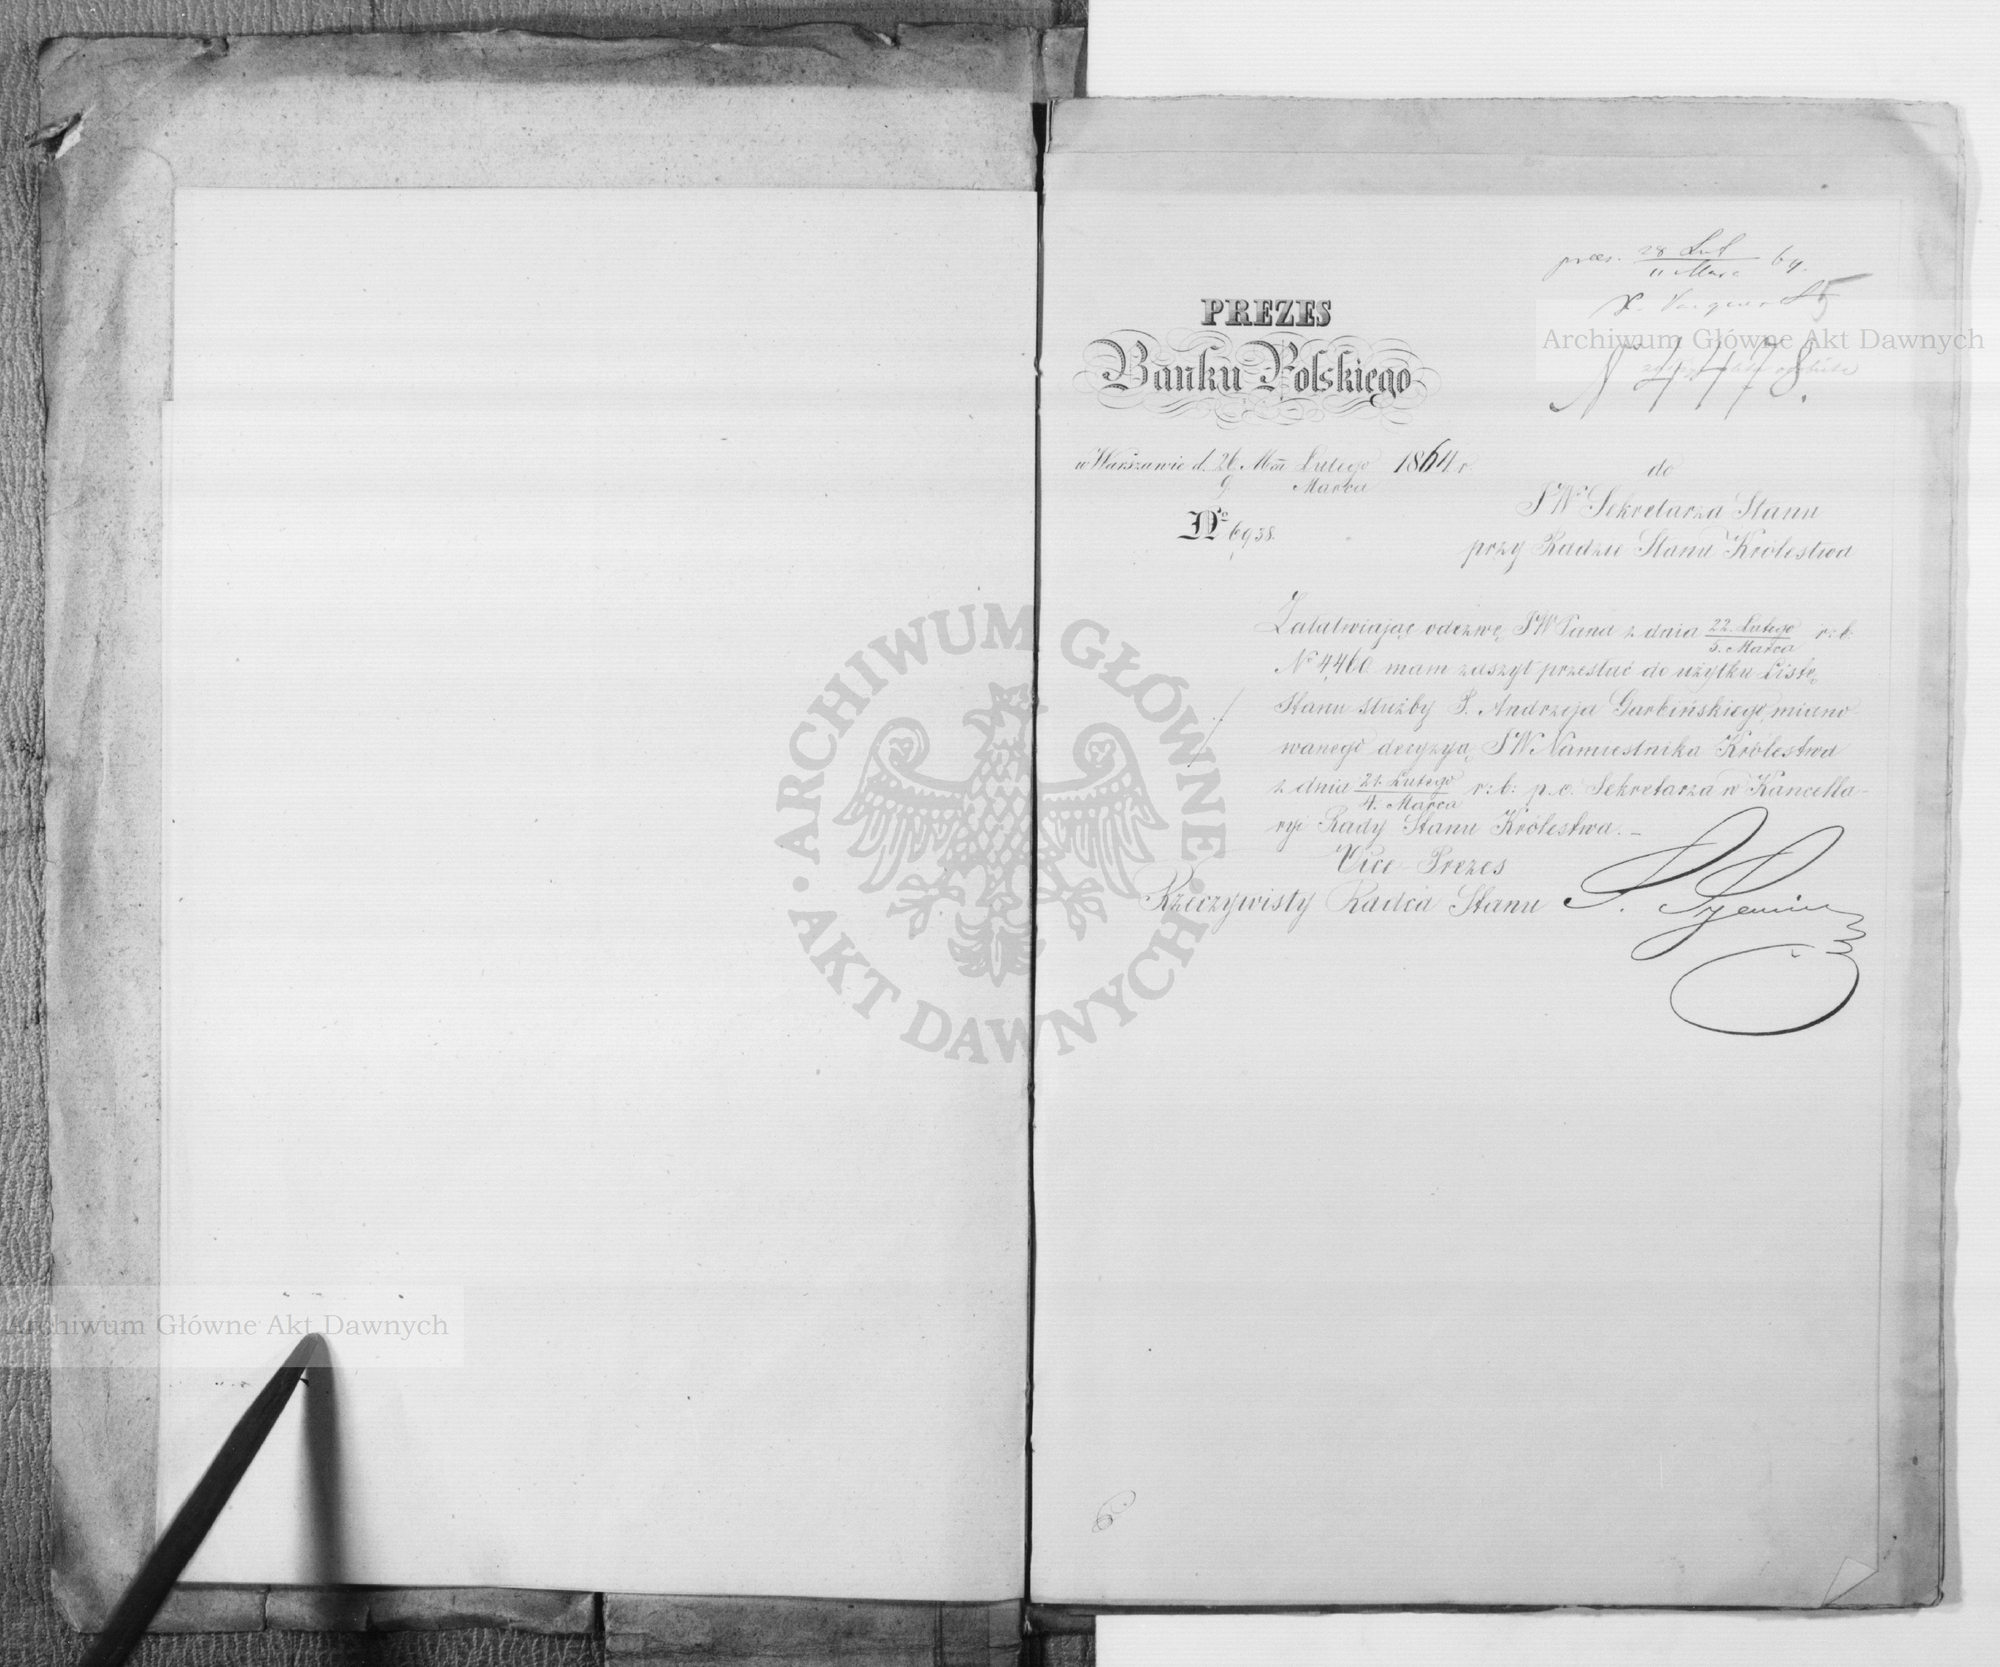 pres. 28 Lut 64.
11 Marc
Archiwum Główne Akt Dawnych
N 4478.
PREZES
Banku Polskiego
w Warszawie d. 26 Mca Lutego 1864 r
9 Marca
No 6938.
do
JW. Sekretarza Stanu
przy Radzie Stanu Królestwa
Załatwiając odezwę JW Pana z dnia 22. Lutego r: b:
5. Marca
No 4,460 mam zaszyt przesłać do użytku Listę
Stanu służby P. Andrzeja Garbińskiego, miano
wanego decyzyą JW Namiestnika Królestwa
z dnia 21. Lutego r: b: p.o. Sekretarza w Kancella-
4. Marca
ryi Rady Stanu Królestwa. –
Vice Prezes
Rzeczywisty Radca Stanu
ARCHIWUM GŁÓWNE
AKT DAWNYCH
Archiwum Główne Akt Dawnych